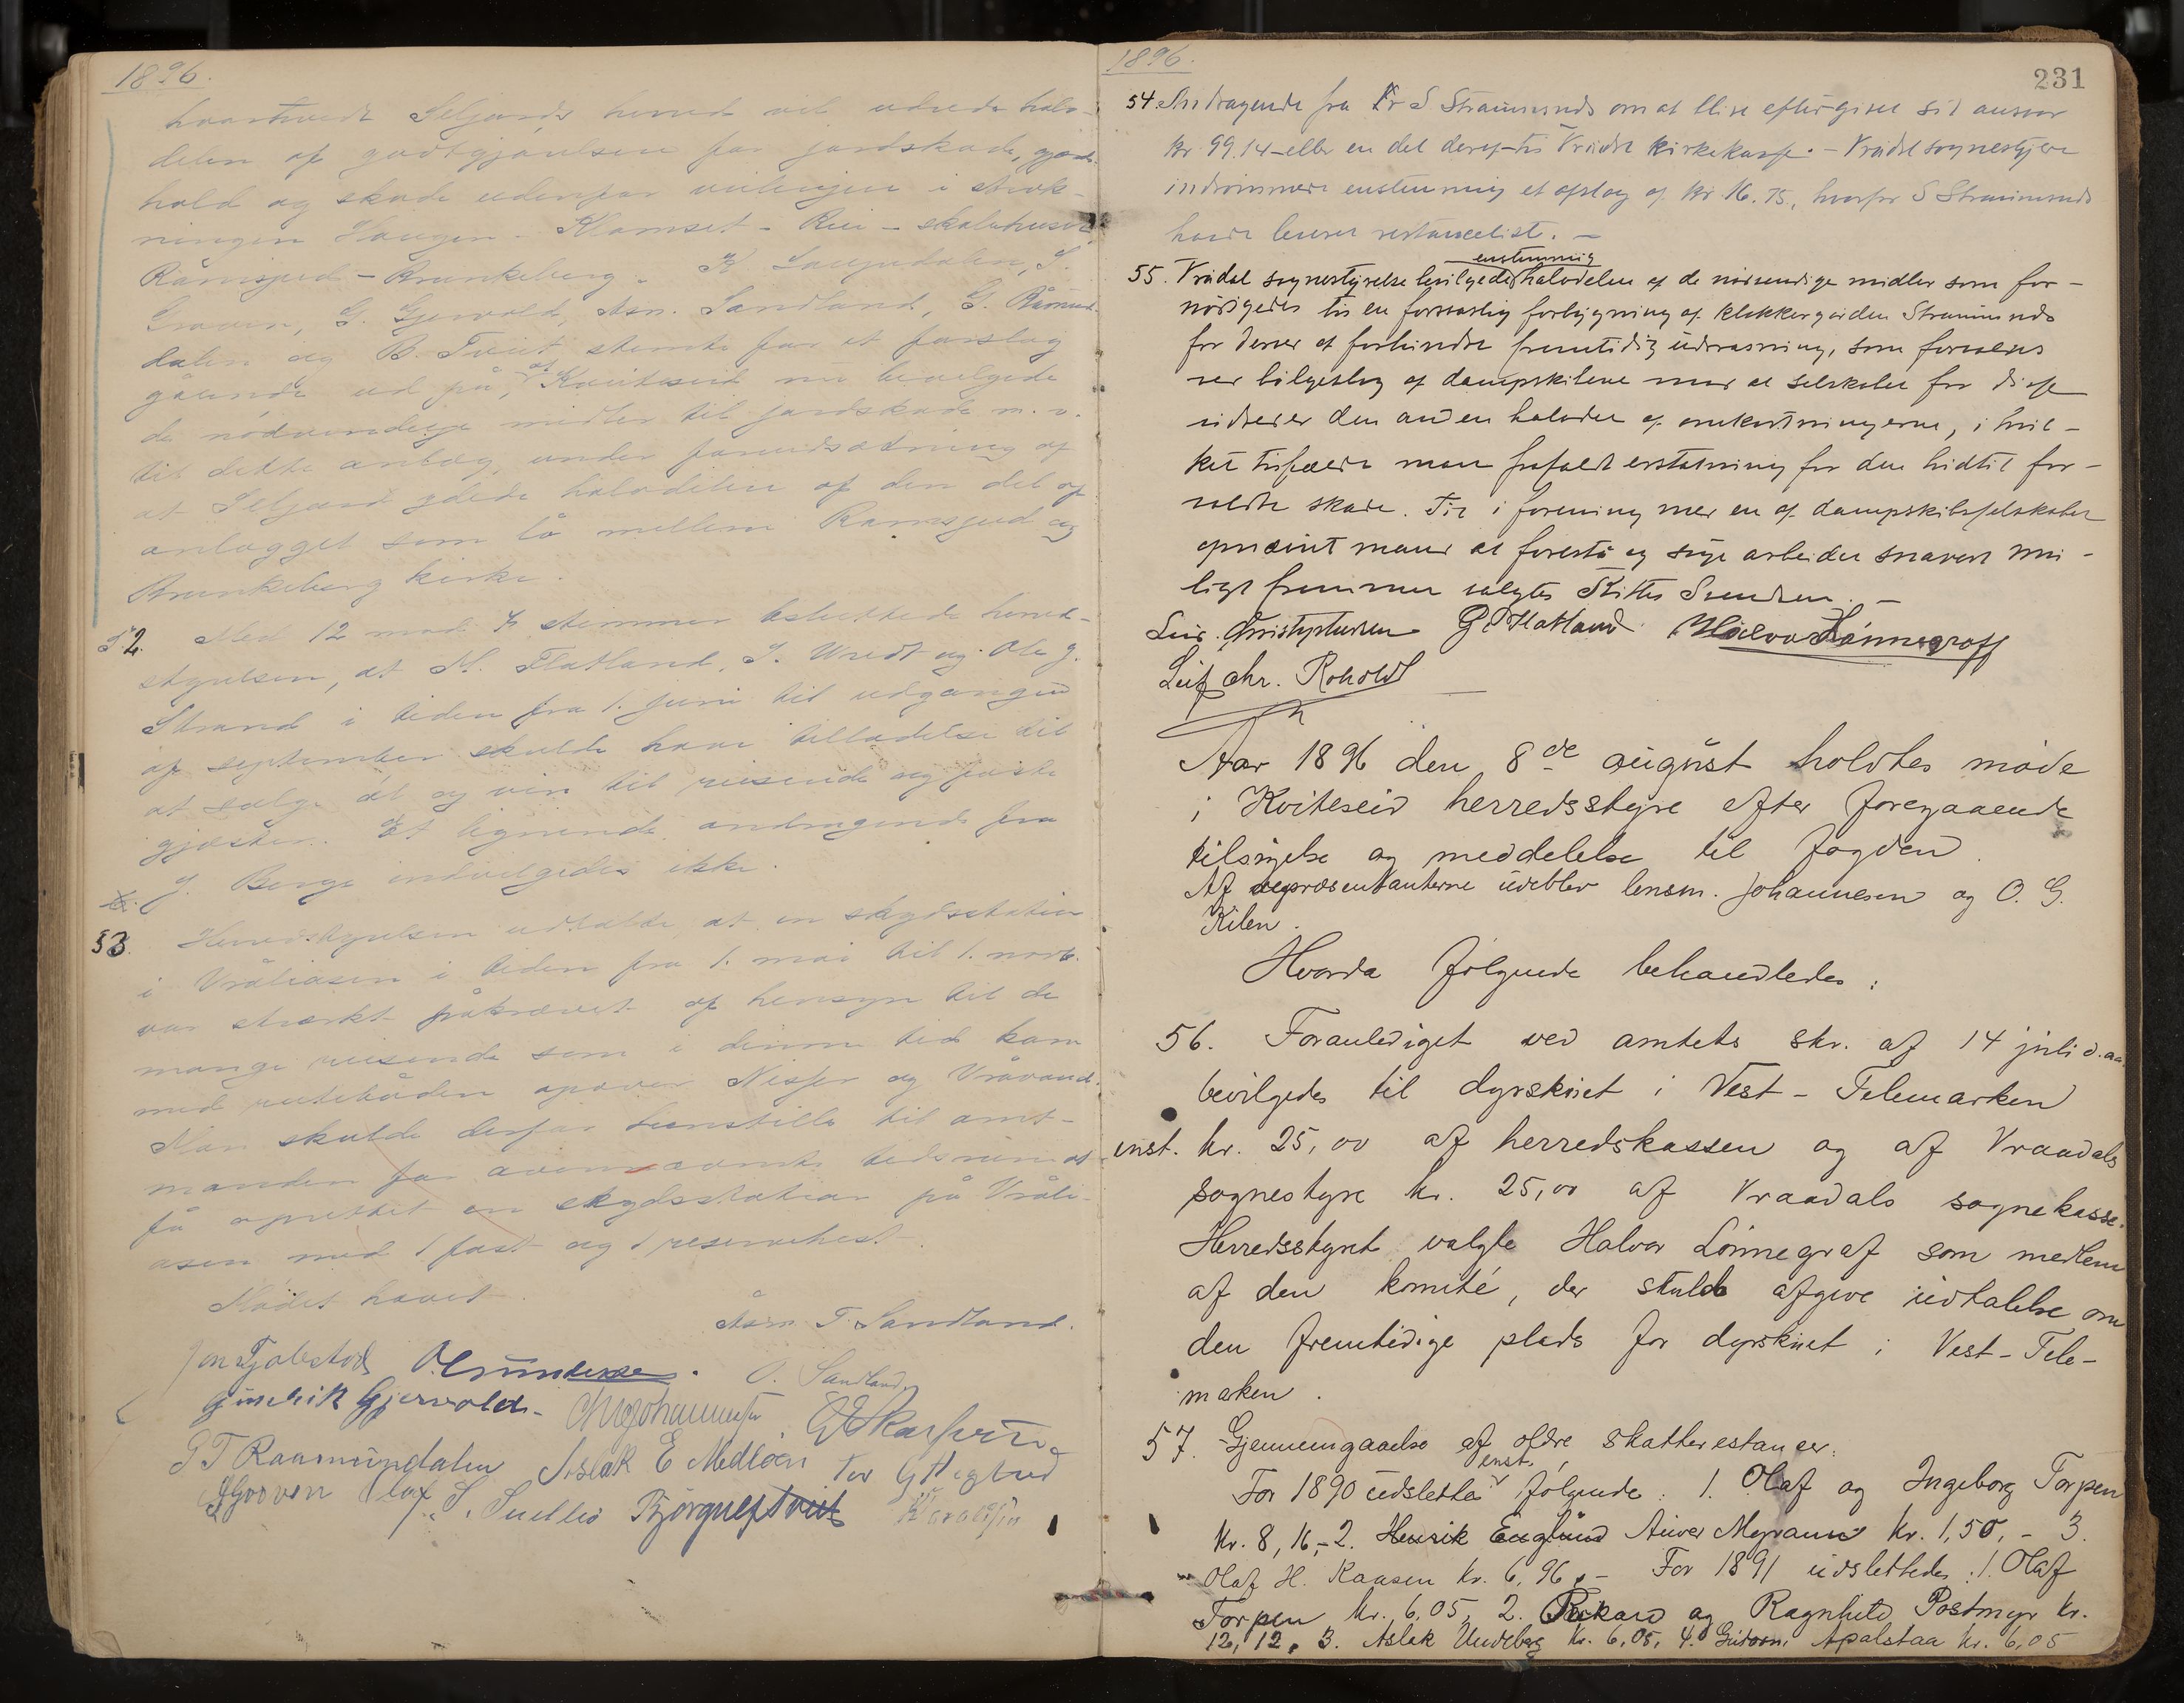 1896.
hvorhvidt Seljords herred vil udrede halv-
delen af godtgjørelsen for jordskade, gjerde-
hold og skade udenfor veilinjen i stræk-
ningen Haugen - Klomset - Rui - skolehuset
Ramsjord - Brunkeberg. K Langedalen, S.
Grøven, G. Gjervold, Asm. Sandland, G. Råmund-
dalen og B. Tveit stemte for et forslag
gående ud på, at Kviteseid nu bevilgede
de nødvendige midler til jordskade m.v.
til dette anlæg, under forudsætning af
at Seljord ydede halvdelen af den del af
anlægget som lå mellem Ramsjord og
Brunkeberg kirke.
52. Med 12 mod 4 stemmer besluttede herred-
styrelsen, at N. Flatland, S. Uredt og Ole J.
Strand i tiden fra 1. juni til udgangen
af september skulde have tilladelse til
at sælge øl og vin til reisende og faste
gjæster. Et lignende andragende fra
J. Berge indvilgedes ikke.
53. Herredstyrelsen udtalte at en skydsstation
i Vråliosen i tiden fra 1. mai til 1. novb.
var stærkt påkrævet af hensyn til de
mange reisende som i denne tid kom
med rutebåden opover Nisser og Vråvand.
Man skulde derfor henstille til amt-
manden for ovennævnte tidsrum at
få oprettet en skydsstation på Vråli-
osen med 1 fast og 1 reservehest.
Mødet hævet.
Åsm. T. Sandland.
Jon Tjobstøds O. Sandland
Gunleik Gjervolds - Johannesen
G T Raamundalen Aslak E Medlöen Tor G Hegtved
Grøven Olaf S. Suttlei Bjørgulf Tveit
1896.
231
54. Andragende fra Kr S Straumsnds om at blive eftergivet sit ansvar
kr 99.14 - eller en del deraf - til Vrådal kirkekasse. - Vrådal sognestyre
indrømmede enstemmig et afslag af kr 16.75, hvorfor S Straumsnds
havde leveret restanceliste. -
55. Vrådal sognestyrelse bevilgedes enstemmig halvdelen af de nødvendige midler som for-
nødigedes til en forsvarlig forbygning af klokkergården Straumsnds
for derved at forhindre fremtidig udrasning, som forvoldes
ved bølgeslag af dampskibene mod at selskabet for disse
udreder den anden halvdel af omkostningerne, i hvil-
ket tilfælde man frafaldt erstatning for den hidtil for-
voldte skade. Til i forening med en af dampskibsselskabet
opnævnt mand at forestå og søge arbeidet snarest mu-
ligt fremmet valgtes Kittil Svendsen. -
Leif Christophersen G. Hatland Halvor Lönnegraff
Leif Chr. Roholdt
Aar 1896 den 8de august holdtes møde
i Kviteseid herredsstyre efter foregaaende
tilsigelse og meddelelse til fogden.
Af repræsentanterne udeblev lensm. Johannesen og O. G.
Kilen.
Hvorda følgende behandledes:
56. Foranlediget ved amtets skr. af 14 juli d. aa
bevilgedes til dyrskuet i Vest-Telemarken
enst. kr. 25,00 af herredskassen og af Vraadals
sognestyre kr. 25,00 af Vraadals sognekasse.
Herredsstyret valgte Halvor Lönnegraf som medlem
af den komité, der skulde afgive udtalelse om
den fremtidige plads for dyrskuet i Vest-Tele-
marken.
57. Gjennemgaaelse af ældre skatterestancer.
For 1890 udslettes enst. følgende: 1. Olaf og Ingeborg Torpen
kr. 8,16, - 2. Henrik Englund Aiver Myraune kr. 1,50, - 3.
Olaf H. Kaasen kr. 6,96, - For 1891 udslettedes: 1. Olaf
Torpen kr. 6,05, 2. Rikard og Ragnhild Postmyr kr.
12,12, 3. Aslak Undeberg kr. 6,05, 4. Gudoon. Apalstaa kr. 6,05